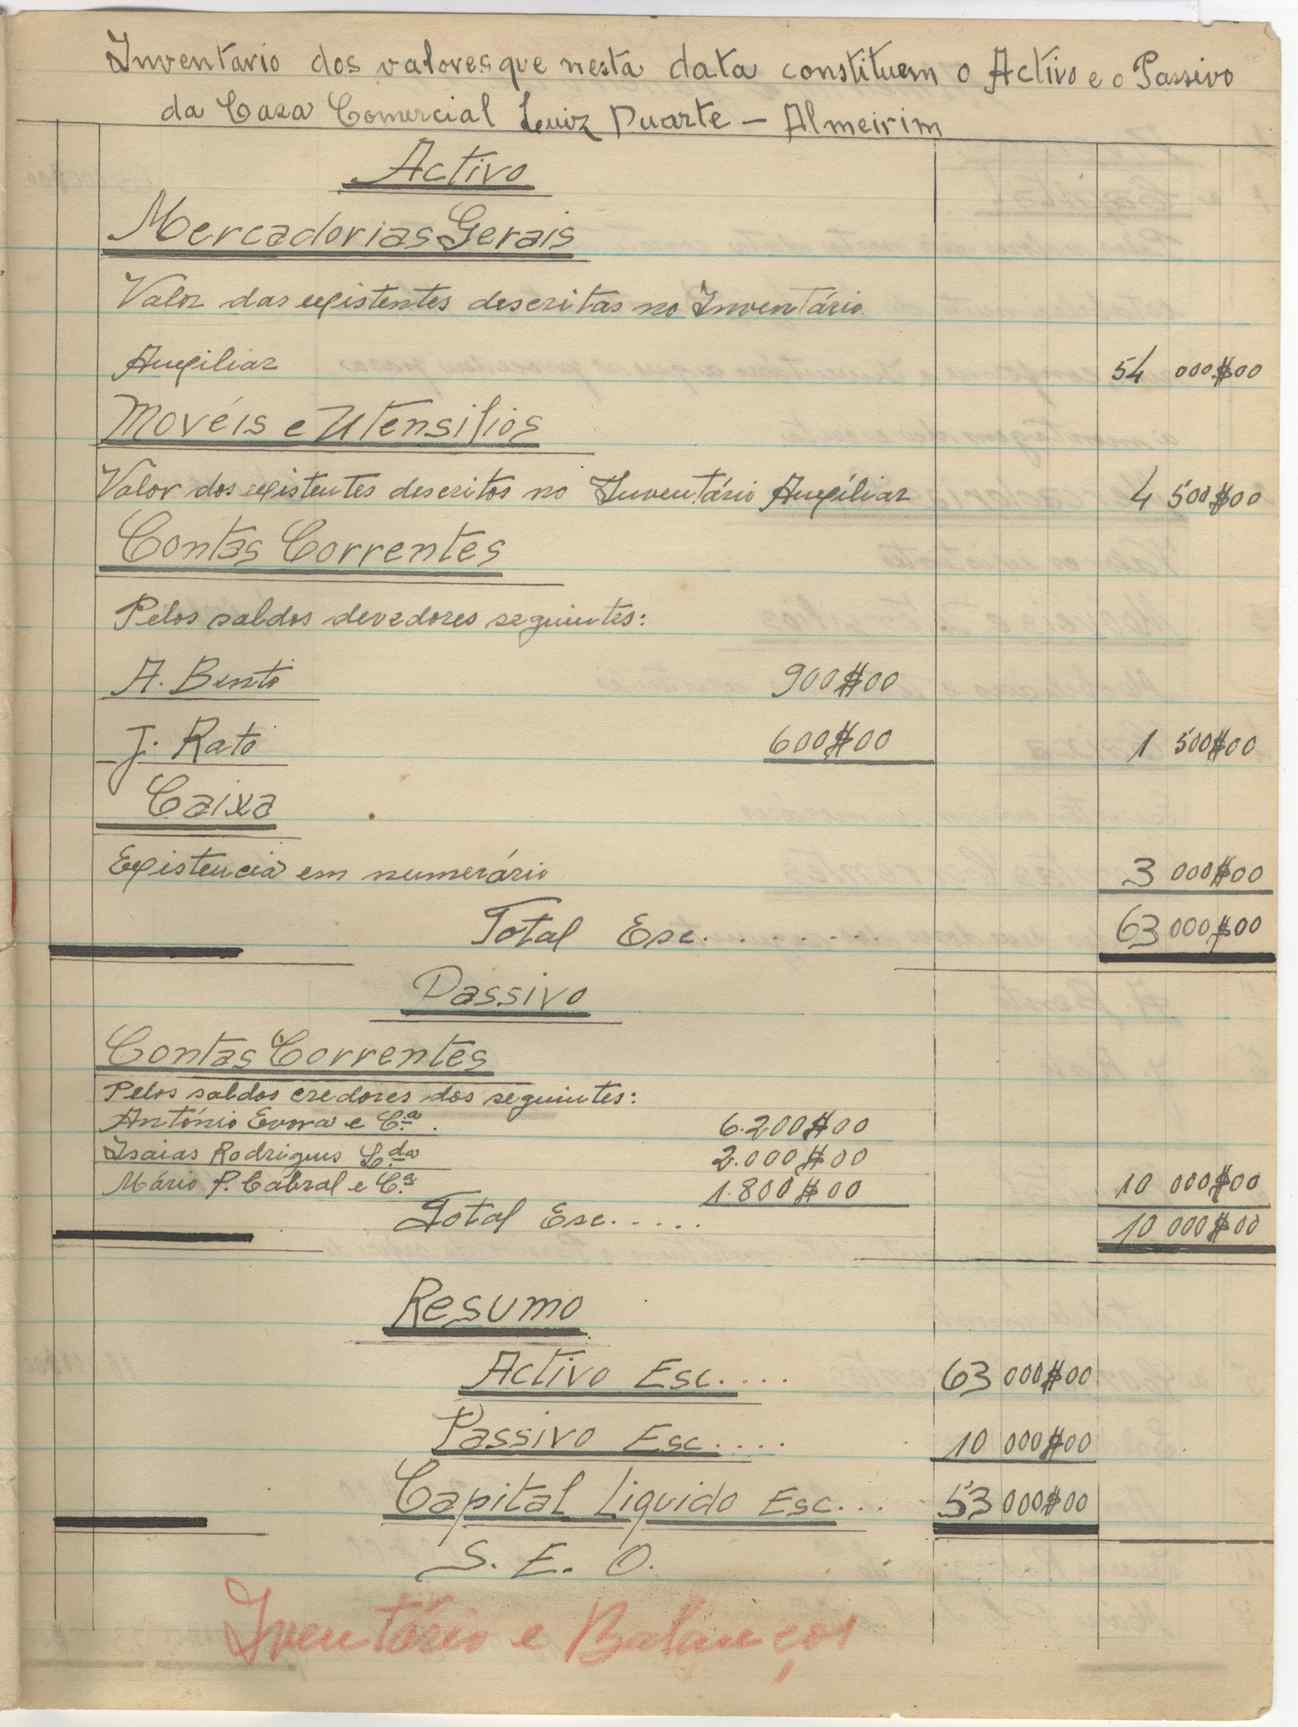 Inventario dos valores que nesta data constituem o Activo e o Passivo
da Casa Comercial Luiz Duarte — Almeirim
Activo
Mercadorias Gerais
Valor das existentes descritas no Inventário
Auxiliar 54 000$00
Movéis e Utensilios
Valor dos existentes descritos no Inventário Auxiliar 4 500$00
Contas Correntes
Pelos saldos devedores seguintes:
A. Bento 900$00
J. Rato 600$00 1 500$00
Caixa
Existencia em numerário 3 000$00
Total Esc........ 63 000$00
Passivo
Contas Correntes
Pelos saldos credores dos seguintes:
António Evora e C.ª 6.200$00
Isaias Rodrigues L.da 2.000$00
Mário P. Cabral e C.ª 1.800$00 10 000$00
Total Esc..... 10 000$00
Resumo
Activo Esc.... 63 000$00
Passivo Esc.... 10 000$00
Capital Liquido Esc... 53 000$00
S. E. O.
Iventário e Balanços